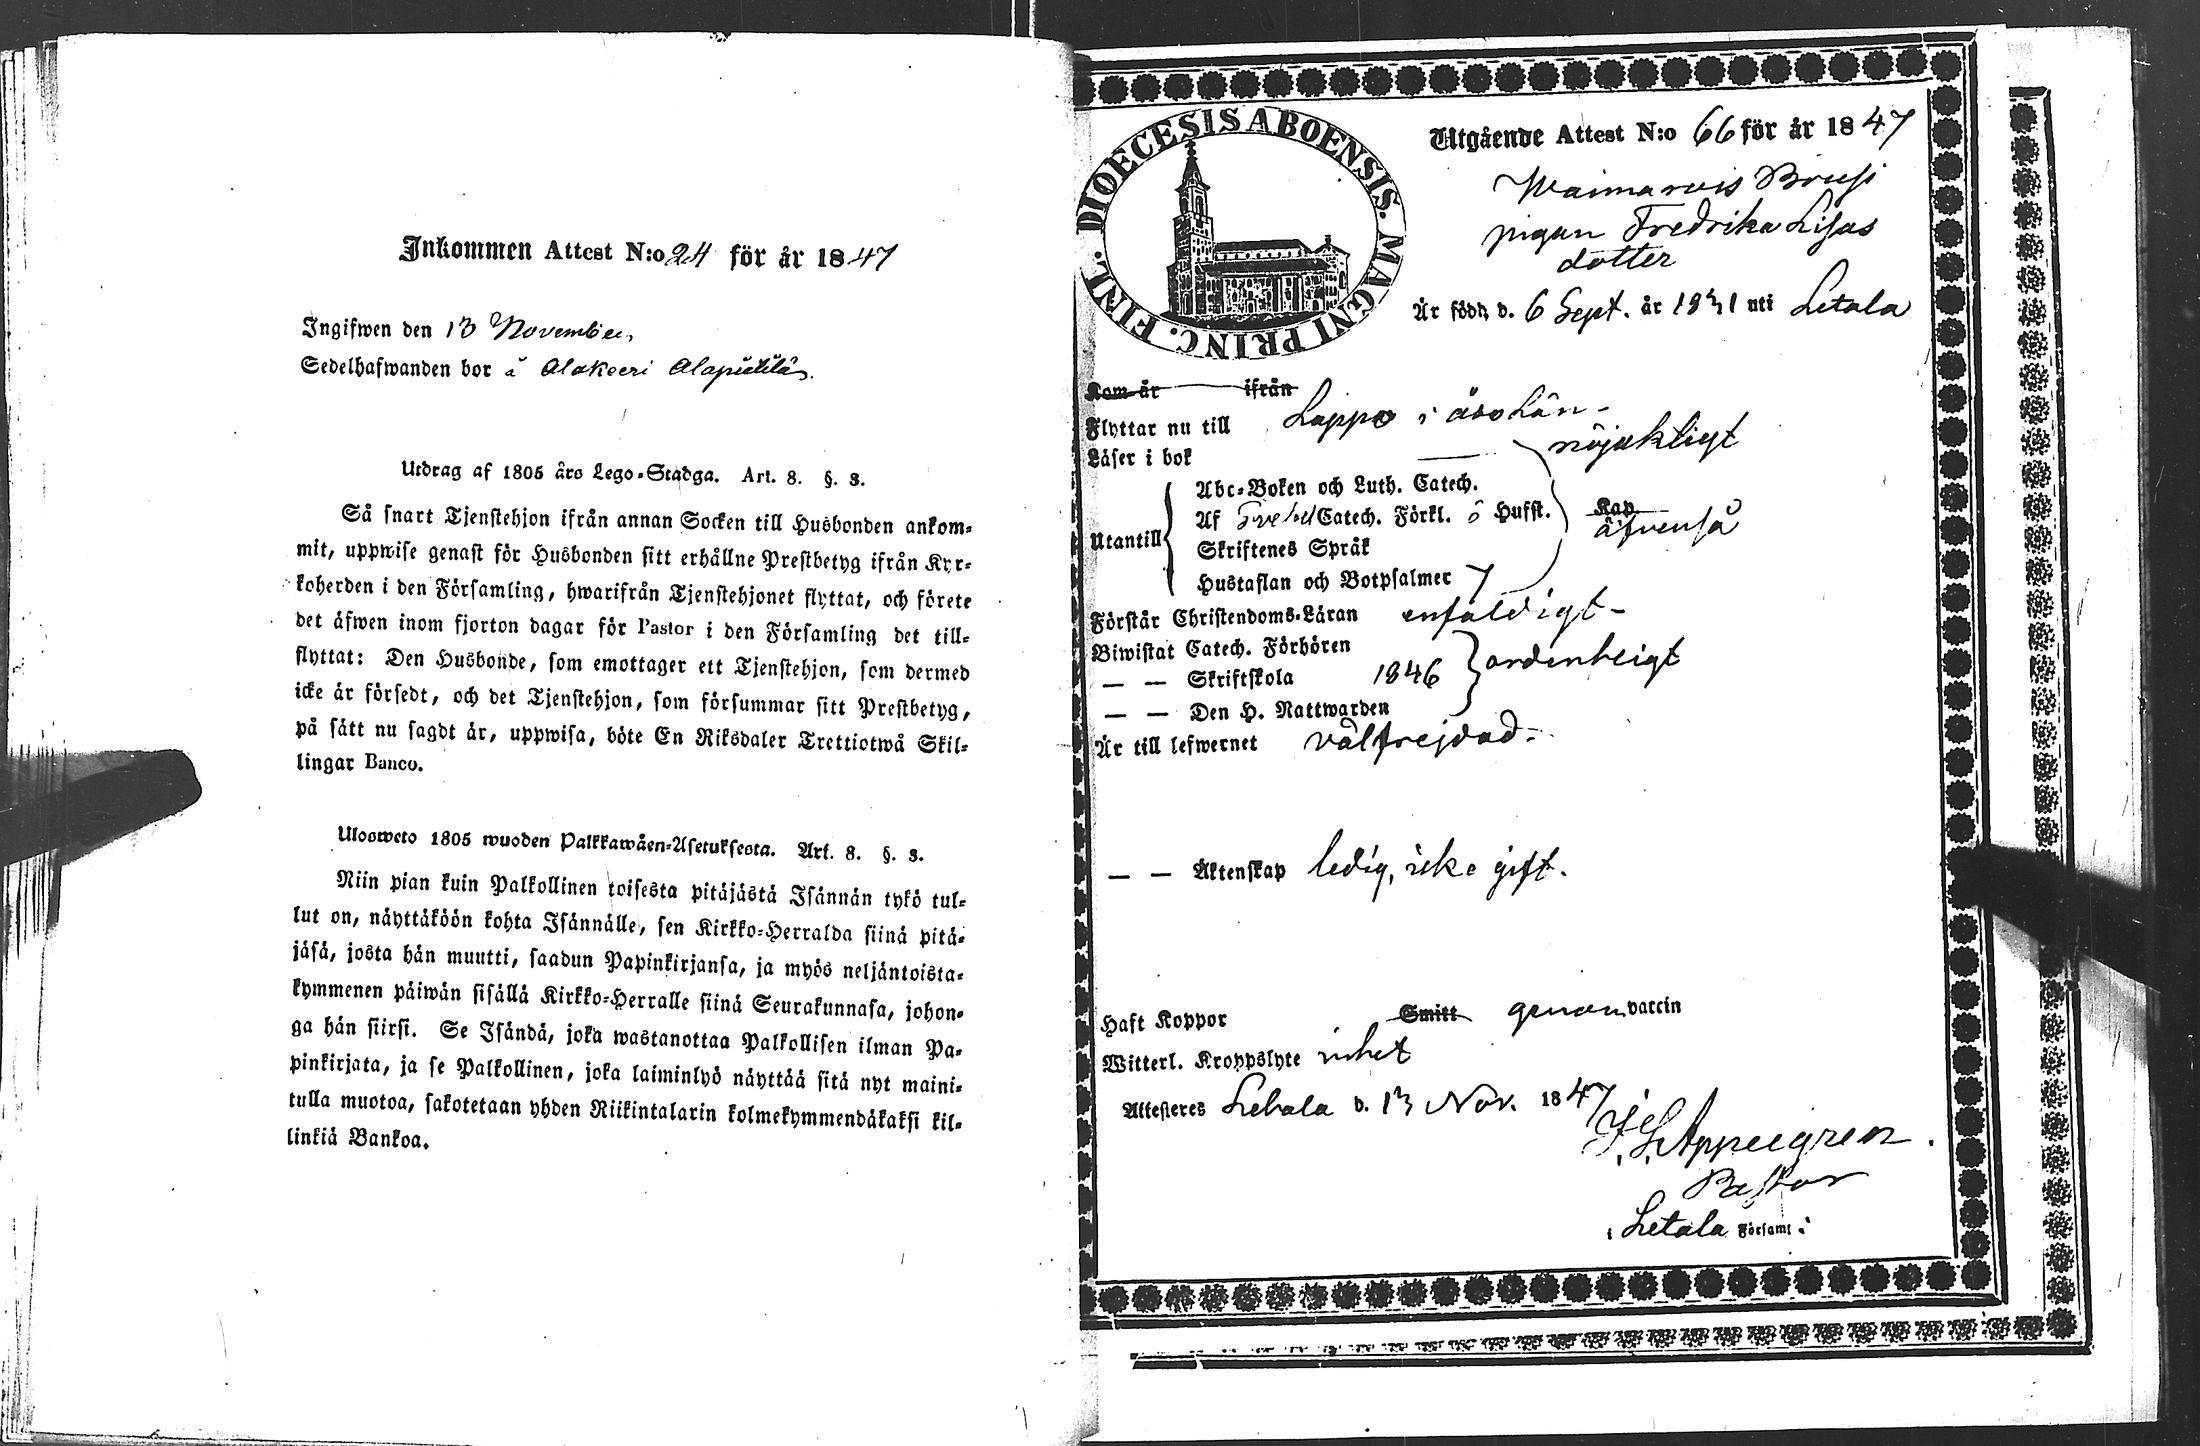 Inkommen Attest N:o 24 för år 1847
Ingifwen den 13 November,
Sedelhafwanden bor å Alakeeri
Utdrag af 1805 års Lego-Stadga. Art. 8. §. 3.
Så snart Tjenstehjon ifrån annan Socken till Husbonden ankom-
mit, uppwise genast för Husbonden sitt erhållne Prestbetyg ifrån Kyr-
koherden i den Församling, hwarifrån Tjenstehjonet flyttat, och förete
det äfwen inom fjorton dagar för Pastor i den Församling det till-
flyttat: Den Husbonde, som emottager ett Tjenstehjon, som dermed
icke är försedt, och det Tjenstehjon, som försummar sitt Prestbetyg,
på sätt nu sagdt är, uppwisa, böte En Riksdaler Trettiotwå Skil-
lingar Banco.
Ulosweto 1805 wuoden Palkkawäen-Asetuksesta. Art. 8. §. 3.
Niin pian kuin Palkollinen toisesta pitäjästä Isännän tykö tul-
lut on, näyttäköön kohta Isännälle, sen Kirkko-Herralda siinä pitä-
jäsä, josta hän muutti, saadun Papinkirjansa, ja myös neljäntoista-
kymmenen päiwän sisällä Kirkko-Herralle siinä Seurakunnasa, johon-
ga hän siirsi. Se Isändä, joka wastanottaa Palkollisen ilman Pa-
pinkirjata, ja se Palkollinen, joka laiminlyö näyttää sitä nyt maini-
tulla muotoa, sakotetaan yhden Riikintalarin kolmekymmendäkaksi kil-
linkiä Bankoa.
DIOECESIS ABOENSIS. MAGNI PRINC. FINL.
Utgående Attest N:o 66 för år 1847
pigan Fredrika Lisas
dotter
Är född d. 6 Sept. år 1831 uti Letala
Kom år ifrån
Flyttar nu till Lappo i Åbo Län-
Läser i bok nöjaktligt
Utantill
Abc-Boken och Luth. Catech.
Af Catech. Förkl. o Husst. Kap
äfvenså
Skriftenes Språk
Hustaflan och Botpsalmer 7
Förstår Christendoms-Läran enfaldigt-
Biwistat Catech. Förhören
— — Skriftskola 1846 ordentligt
— — Den H. Nattwarden
Är till lefwernet välfrejdad-
— — Äktenskap ledig, icke gift.
Haft Koppor Smitt genom vaccin
Witterl. Kroppslyte intet
Attesteres Letala d. 13 Nov. 1847
Appelgren.
Pastor
i Letala Församl: